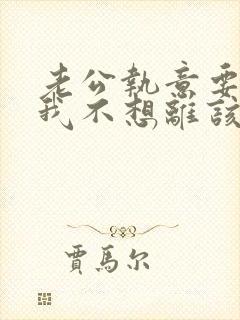 老公執意要
我不想離該
賈馬尔